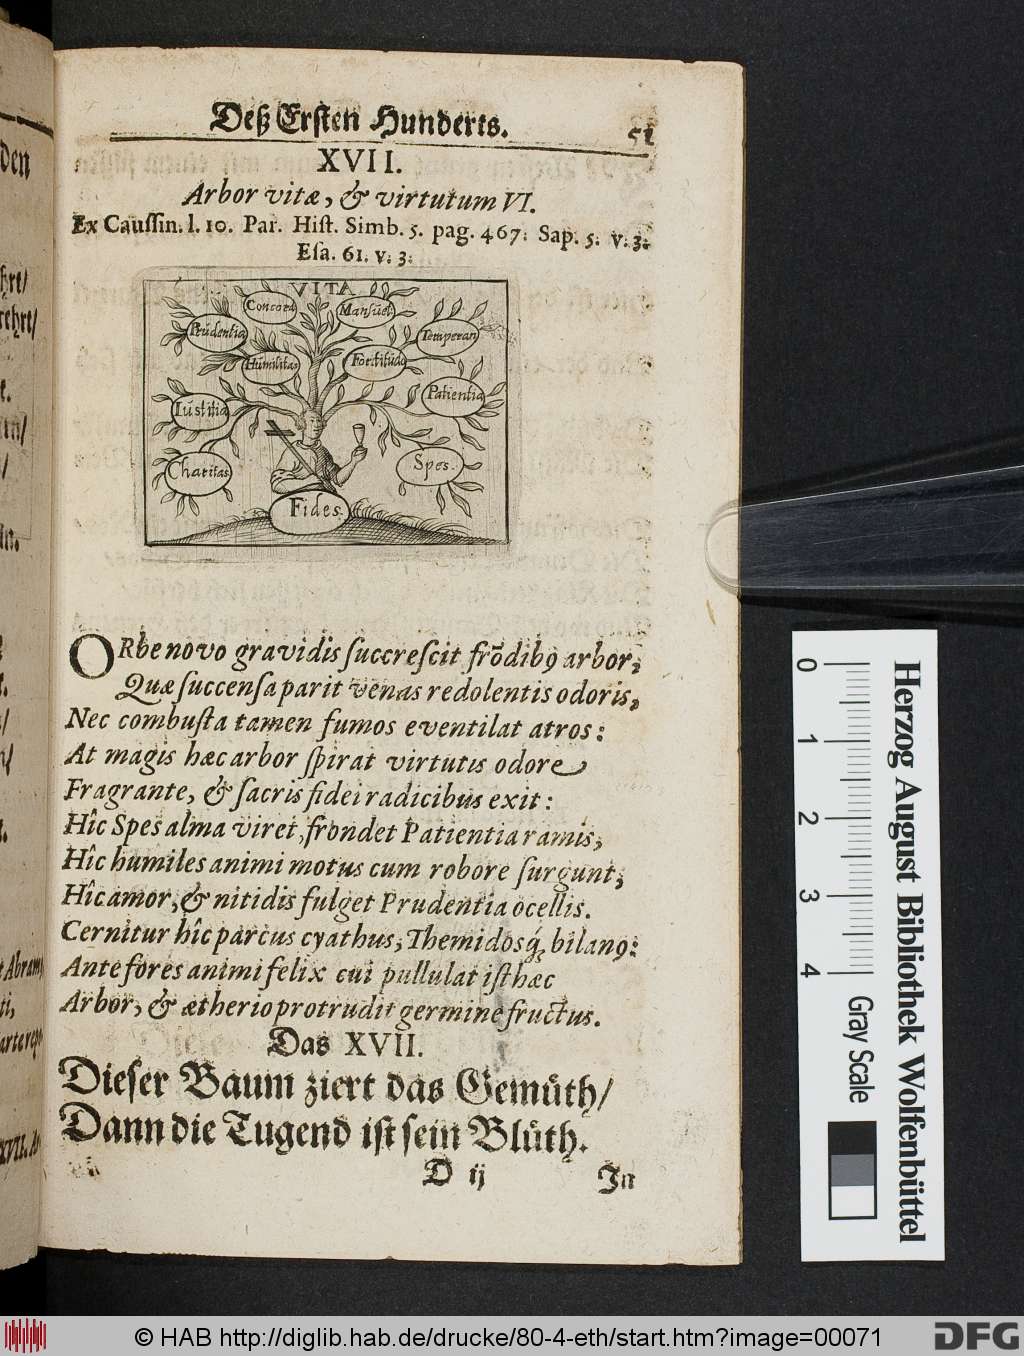 Deß Ersten Hunderts. 51
XVII.
Arbor vitæ, & virtutum VI.
Ex Caussin. l. 10. Par. Hist. Simb. 5. pag. 467: Sap. 5: v: 3:
Esa. 61. v: 3:
VITA
Concord
Mansuet.
Prudentia
Temperan
Humilitas
Fortitudo
Patientia
Iustitia
Charitas
Spes.
Fides.
ORbe novo gravidis succrescit frõdibꝰ arbor;
Quæ succensa parit venas redolentis odoris,
Nec combusta tamen fumos eventilat atros:
At magis hæc arbor spirat virtutis odore
Fragrante, & sacris fidei radicibus exit:
Hîc Spes alma viret, frondet Patientia ramis;
Hîc humiles animi motus cum robore surgunt;
Hîc amor, & nitidis fulget Prudentia ocellis.
Cernitur hîc parcus cyathus; Themidosq́; bilanꝰ:
Ante fores animi felix cui pullulat isthæc
Arbor, & ætherio protrudit germine fructus.
Das XVII.
Dieser Baum ziert das Gemüth/
Dann die Tugend ist sein Blüth.
D ij In
den
Abram
XVII.
0 1 2 3 4
Gray Scale
Herzog August Bibliothek Wolfenbüttel
© HAB http://diglib.hab.de/drucke/80-4-eth/start.htm?image=00071
DFG